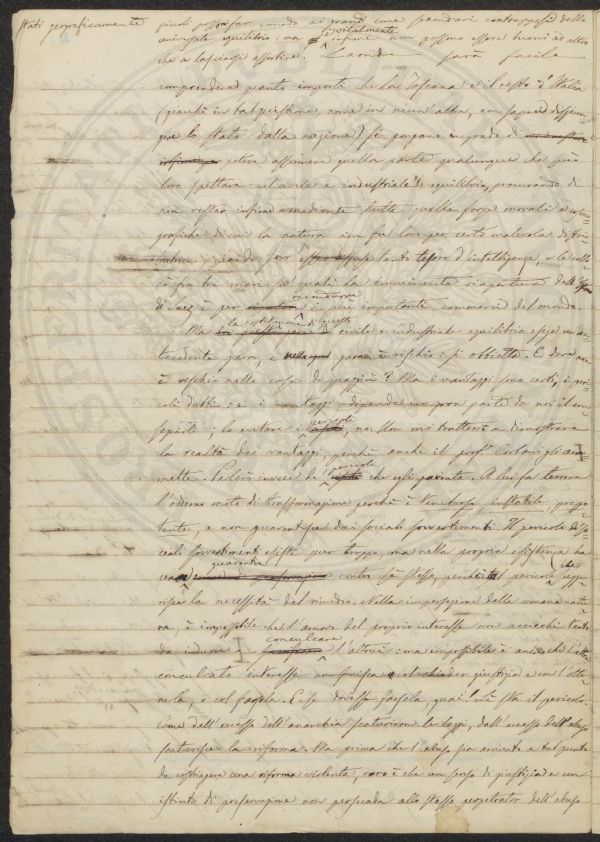 Stati geograficamente piccoli possono far comodo ai grandi come secondari contrappesi dello
universale equilibrio: ma gl' infimi vitalmente non possono essere buoni ad altro
che a lasciarsi assorbire. Laonde sarà facile
comprendere quanto importi che la Toscana e il resto d'Italia
(giacchè in tal quistione, come in niun'altra, non saprei disgiun-
gere lo stato dalla nazione) si pongano in grado di
potere assumere quella parte qualunque che può
loro spettare nel civile e industriale equilibrio, procurando di
non restar infime mediante tutte quelle forze morali e corno-
grafiche di cui la natura non fu loro per certo malevola
quando loro tanto tesoro d'intelligenza, e le collo-
cò fra tre mari pe' quali la imminente riapertura dell'Istmo
di Suez è per ricondurre il più importante commercio del mondo.
Ma la condizione di questo civile e industriale equilibrio esige un an-
tecedente gara, e nella gara è rischio: si obbietta. E dove non
è rischio nelle cose di quaggiù? Ma i vantaggi son certi, i peri-
coli dubbi: e i vantaggi dipende in gran parte da noi il con-
seguirli; lo evitare i pericoli, no. Non mi tratterrò a dimostrare
la realtà dei vantaggi, perchè anche il prof. Corbani gli am-
mette. Parlerò invece de' pericoli che egli paventa. A lui fa terrore
l'odierno moto di trasformazione perchè è ventoso, instabile, prepo-
tente, e non guarentisce dai sociali sovvertimenti. Il pericolo di so-
ciali sovvertimenti esiste pur troppo, ma nella propria esistenza ha
guarentia contro sè stesso, perchè il pericolo che sugge-
risce la necessità del rimedio. Nella imperfezione della umana natu-
ra, è impossibile che l'amore del proprio interesse non accechi tanto
da indurre a conculcare l'altrui: ma impossibile è anche che l'altrui
conculcato interesse non finisca col chieder giustizia e con l'otte-
nerla, o col farsela. E se dovesse farsela, guai! Lì sta il pericolo.
Come dall'eccesso dell'anarchia scaturiron le leggi, dall'eccesso dell'abuso
scaturisce la riforma. Ma prima che l'abuso sia arrivato a tal punto
da costringere una riforma violenta, raro è che un senso di giustizia e un
istinto di preservazione non persuada allo stesso perpetrator dell'abuso